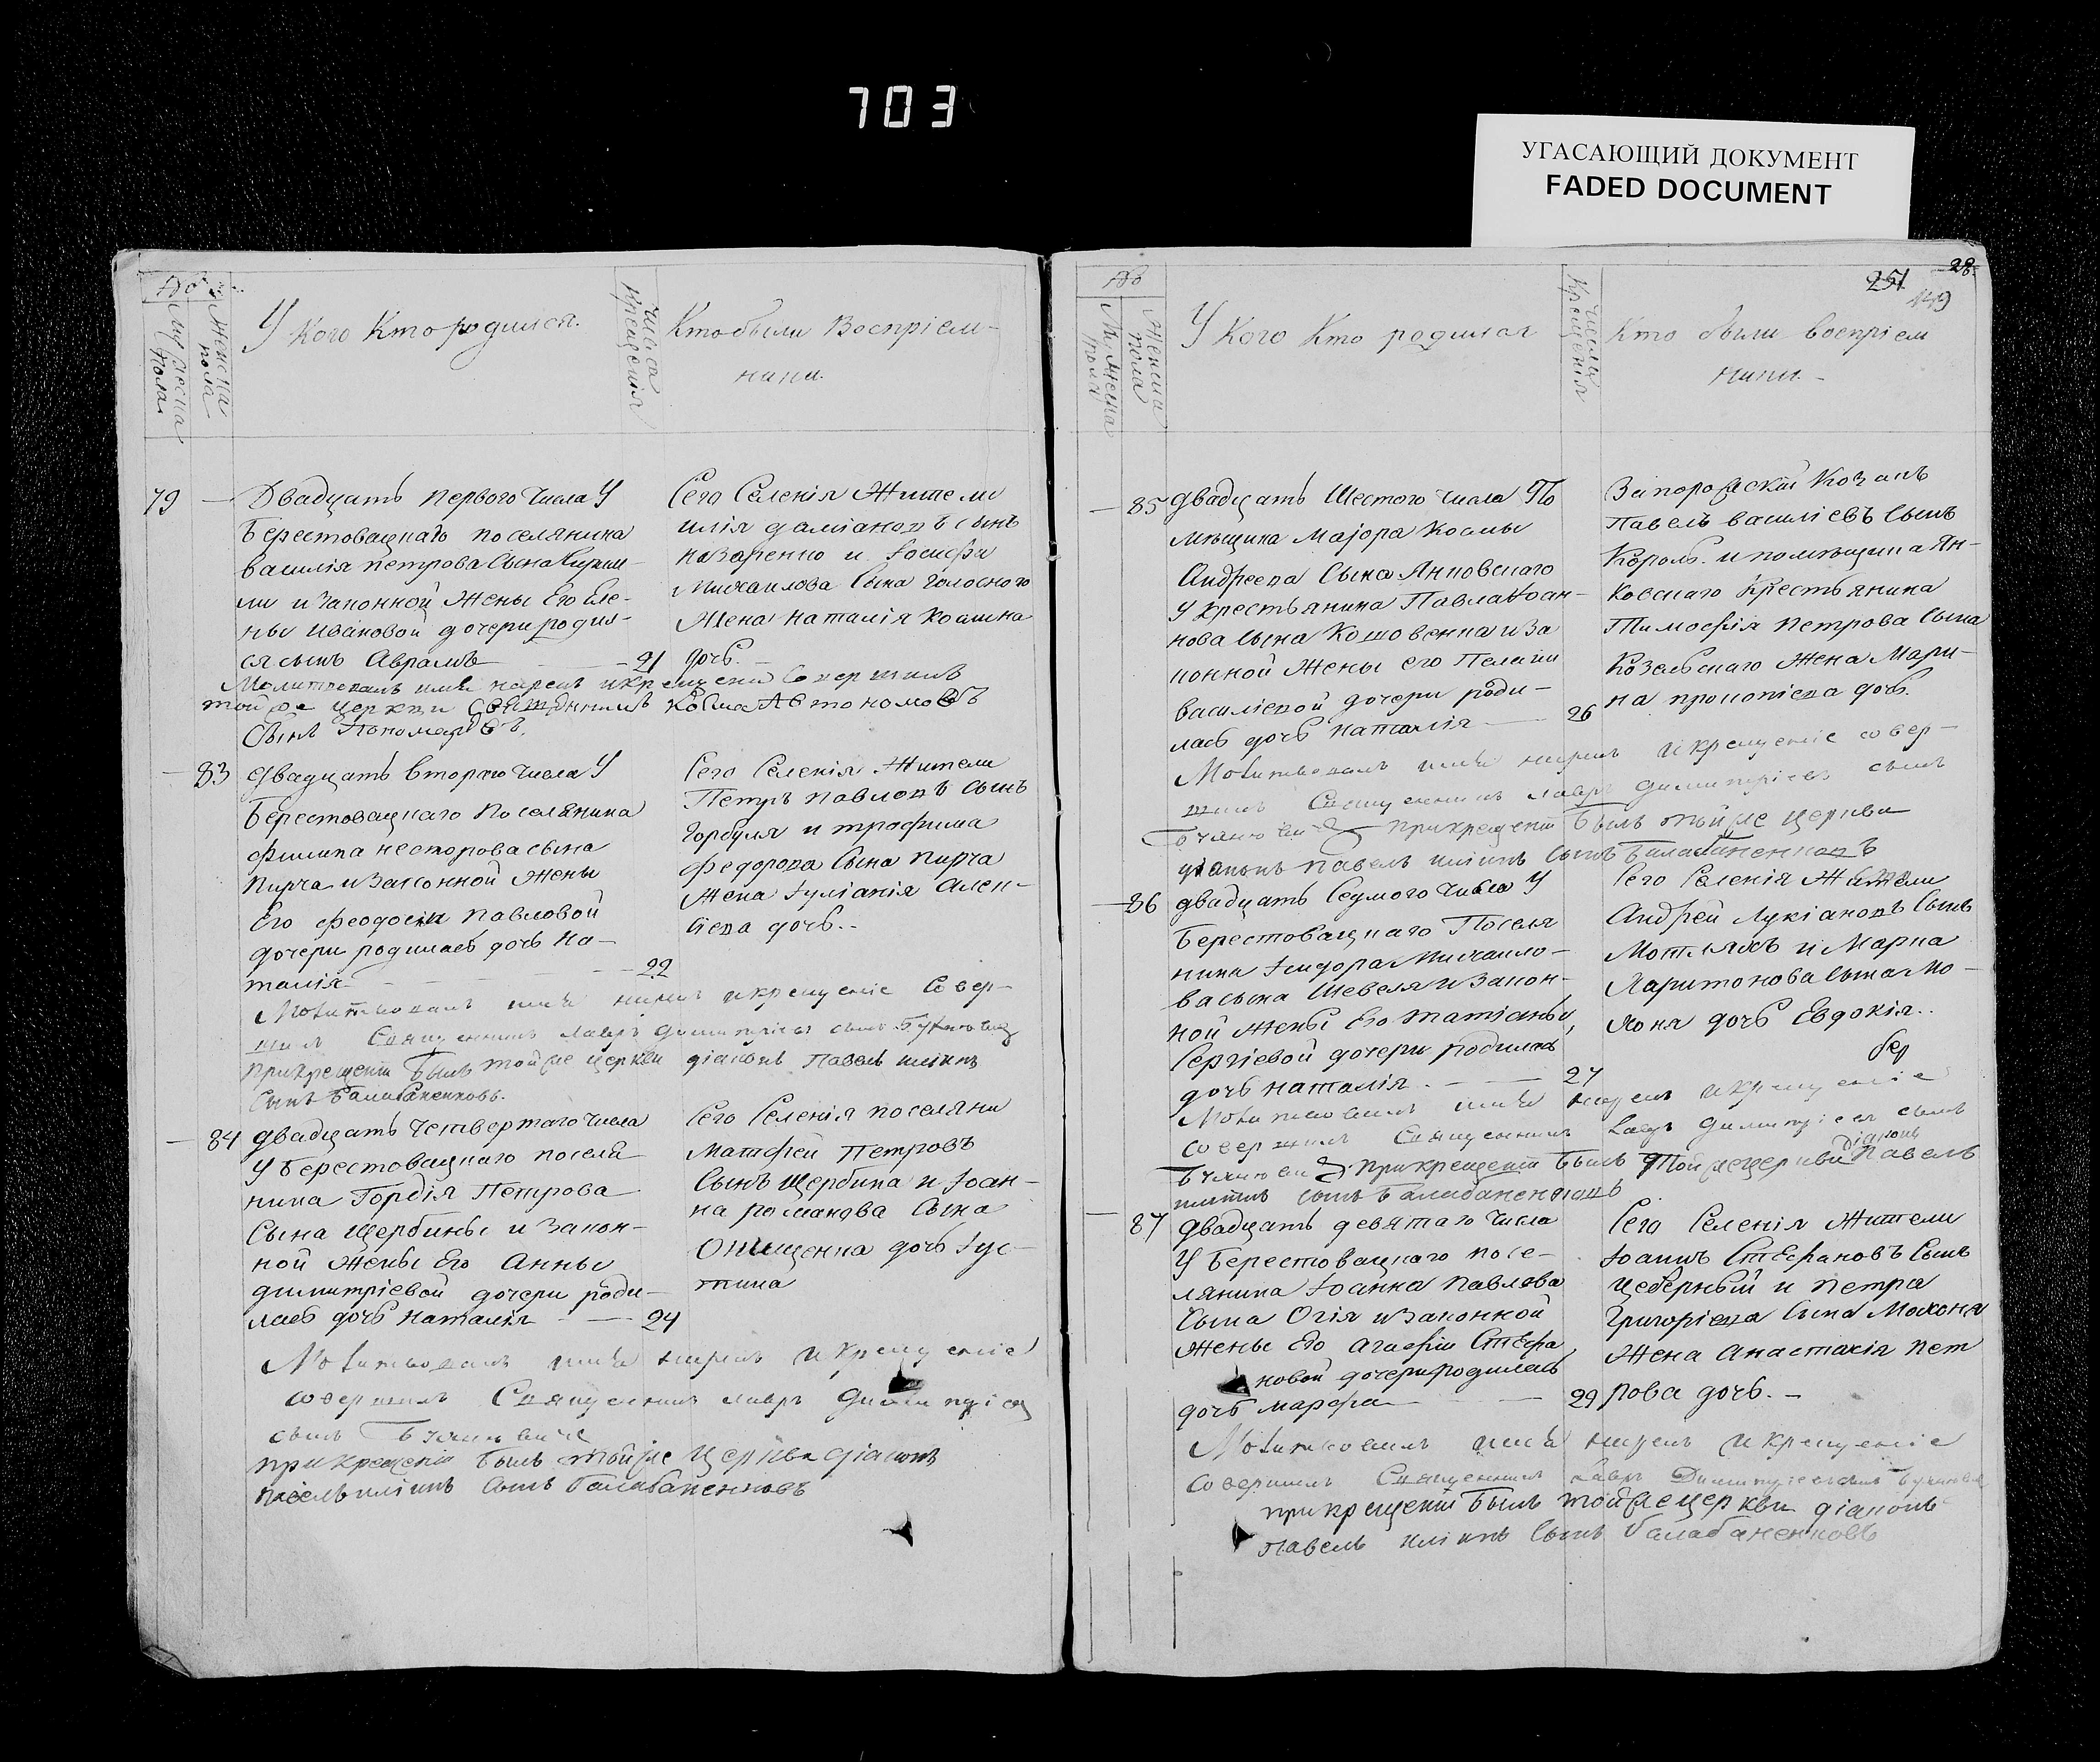 703
УГАСАЮЩИЙ ДОКУМЕНТ
FADED DOCUMENT
№
Мужеска пола
Женска пола
У кого кто родился.
Числа крещенія
Кто были Воспріем-
ники.
79
Двадцать перваго Числа У
Берестовацкаго поселянина
василія петрова Сына
ли и Законной Жены Его Еле-
ны Ивановой дочери родил-
ся сынъ Аврамъ 21
Сего Селенія Жители
илія даміановъ сынъ
назаренко и Іосифа
Михаилова Сына голосного
Жена наталія космина
дочь.
Молитвовалъ имя нарекъ и крещеніе Совершилъ
той же Церкви Священникъ Косма Автономовъ
Сынъ Пономаревъ.
83
двадцать втораго числа У
Берестовацкаго Поселянина
филипа несторова сына
пирча и Законной Жены
Его феодосіи павловой
дочери родилась дочь На-
талія 22
Сего Селенія Жители
Петръ павловъ Сынъ
Горбуля и трофима
федорова Сына пирча
Жена Іуліанія алек-
сіева дочь.
Молитвовалъ имя нарекъ и крещеніе Совер-
шилъ Священникъ лавръ димитріевъ сынъ
при крещеніи былъ той же церкви діаконъ Павелъ иліинъ
Сынъ Балабаненковъ.
84
двадцать Четвертаго Числа
У Берестовацкаго поселя-
нина Гордія Петрова
Сына Щербины и Закон-
ной Жены Его Анны
димитріевой дочери роди-
лась дочь наталія 24
Сего Селенія поселяни
Матфей Петровъ
Сынъ Щербина и Іоан-
на романова Сына
Онищенка дочь Іус-
тина
Молитвовалъ имя нарекъ и крещеніе
совершилъ Священникъ лавръ Димитріевъ
сынъ
при крещеніи былъ той же Церкви діаконъ
павелъ иліинъ Сынъ балабаненковъ
251
28
149
№
Мужеска пола
Женска пола
У Кого Кто родился
Числа Крещенія
Кто были воспріем
ники.
85
двадцать Шестого числа По
мѣщика Маіора Космы
Андреева Сына Янповскаго
У крестьянина Павла Іоан-
нова Сына Кошовенка и За
конной Жены его Пелагіи
василіевой дочери роди-
лась дочь наталія 26
Запорожскій Козакъ
Павелъ василіевъ Сынъ
Король и помѣщика Ян-
ковскаго Крестьянина
Тимофія Петрова Сына
Козельскаго Жена Мари-
на прокопіева дочь.
Молитвовалъ имя нарекъ и крещеніе совер-
шилъ Священникъ лавръ димитріевъ сынъ
при крещеніи былъ той же церкви
діаконъ павелъ иліинъ сынъ балабаненковъ
86
двадцать Седмого Числа У
Берестовацкаго Поселя
нина Ісидора Михаило-
ва сына Шевеля и Закон-
ной Жены Его татіаны
Сергіевой дочери родилась
дочь наталія 27
Сего Селенія Жители
Андрей Лукіановъ Сынъ
Мотляхъ и Марка
Харитонова Сына Мо-
хоня дочь Евдокія.
Молитвовалъ имя нарекъ и крещеніе
совершилъ Священникъ Лавръ Димитріевъ сынъ
при крещеніи былъ той же церкви діаконъ Павелъ
иліинъ сынъ балабаненковъ
87
двадцать девятаго Числа
У Берестовацкаго посе-
лянина Іоанна Павлова
Сына Огія и Законной
Жены Его агафіи Стефа
новой дочери родилась
дочь марфа 29
Сего Селенія Жители
Іоаннъ Стефановъ Сынъ
цеберный и петра
Григоріева Сына Мохоня
Жена анастасія пет
рова дочь.
Молитвовалъ имя нарекъ и крещеніе
совершилъ Священникъ Лавръ Димитріевъ сынъ
при крещеніи былъ той же церкви діаконъ
павелъ иліинъ Сынъ балабаненковъ